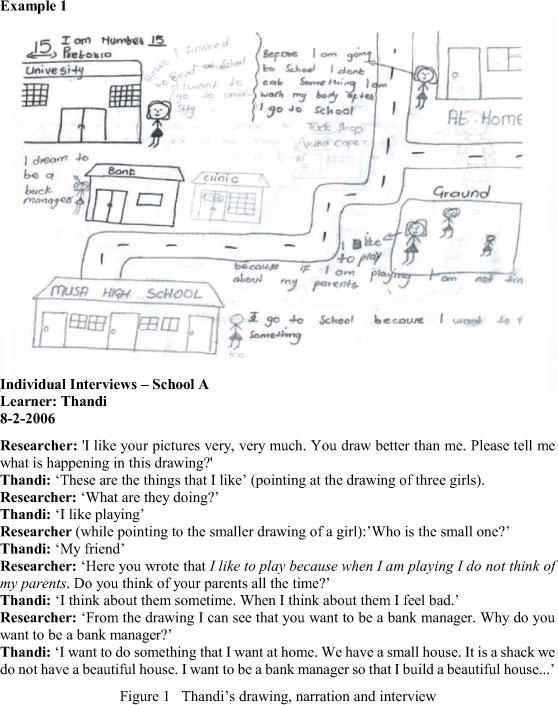 Example 1
15 I am Number 15
Pretoria
University
I finished
School
I want to
go to
Before I am going
to School I dont
eat Something I am
wash my body after
I go to School
AT HOME
Tuck Shop
I dream to
be a
bank
manager
Bank
clinic
Ground
I like
to play
because if I am playing I am not
about my parents
MUSA HIGH SCHOOL
I go to School because I want to
Something
Individual Interviews – School A
Learner: Thandi
8-2-2006
Researcher: 'I like your pictures very, very much. You draw better than me. Please tell me
what is happening in this drawing?'
Thandi: ‘These are the things that I like’ (pointing at the drawing of three girls).
Researcher: ‘What are they doing?’
Thandi: ‘I like playing’
Researcher (while pointing to the smaller drawing of a girl):’Who is the small one?’
Thandi: ‘My friend’
Researcher: ‘Here you wrote that I like to play because when I am playing I do not think of
my parents. Do you think of your parents all the time?’
Thandi: ‘I think about them sometime. When I think about them I feel bad.’
Researcher: ‘From the drawing I can see that you want to be a bank manager. Why do you
want to be a bank manager?’
Thandi: ‘I want to do something that I want at home. We have a small house. It is a shack we
do not have a beautiful house. I want to be a bank manager so that I build a beautiful house...’
Figure 1 Thandi’s drawing, narration and interview